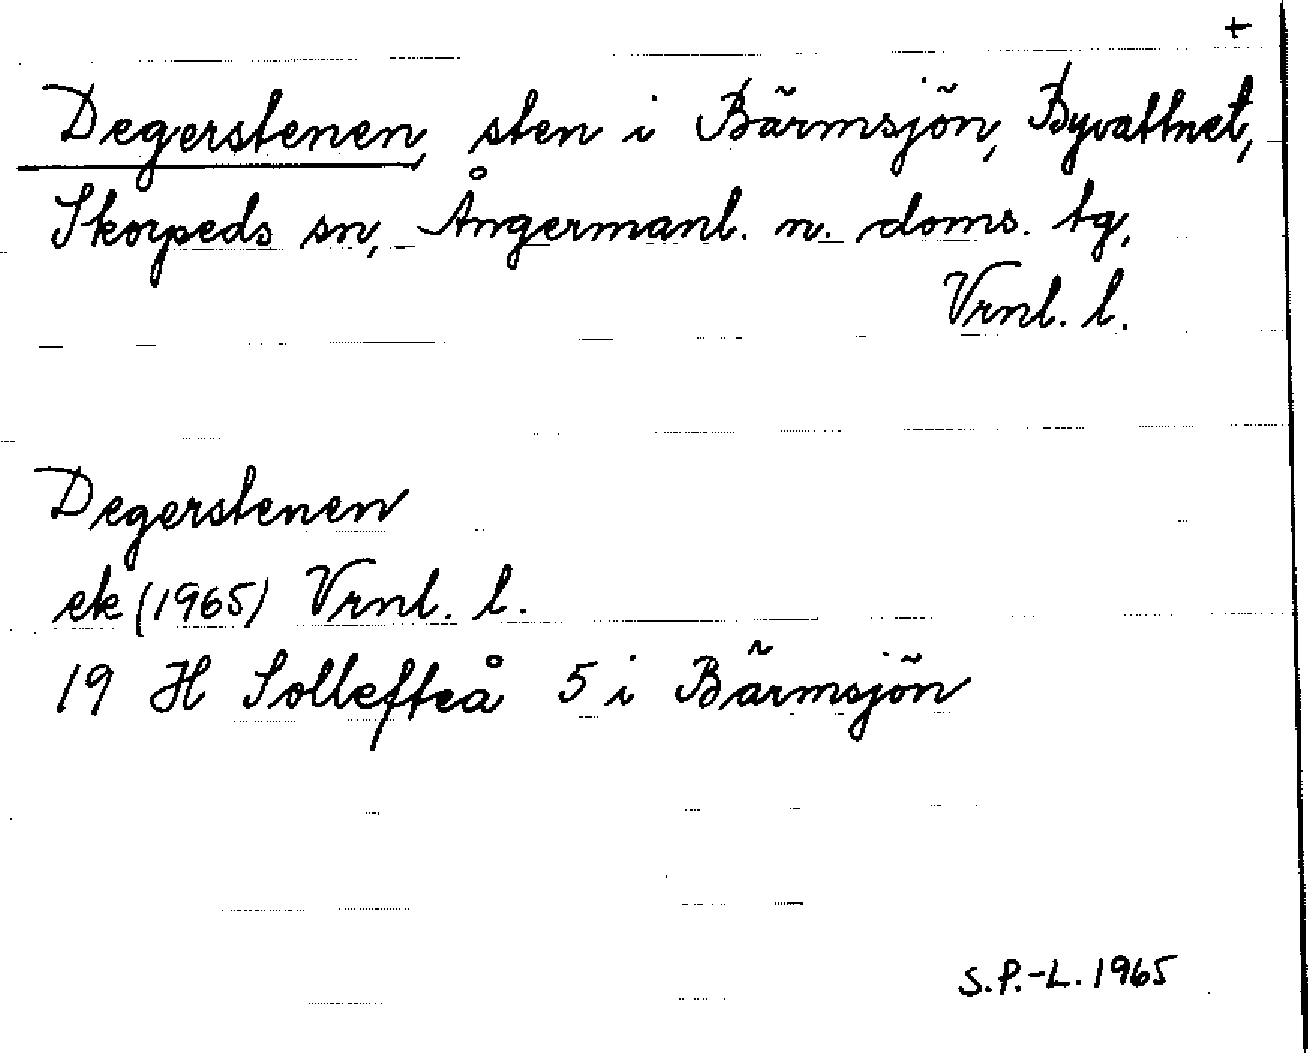 +
Degerstenen, sten i Bärmsjön, Byvattnet,
Skorpeds sn, Ångermanl. n. doms. tg,
Vrnl. l.
Degerstenen
ek (1965) Vrnl. l.
19 H Sollefteå 5 i Bärmsjön
S.P.-L. 1965